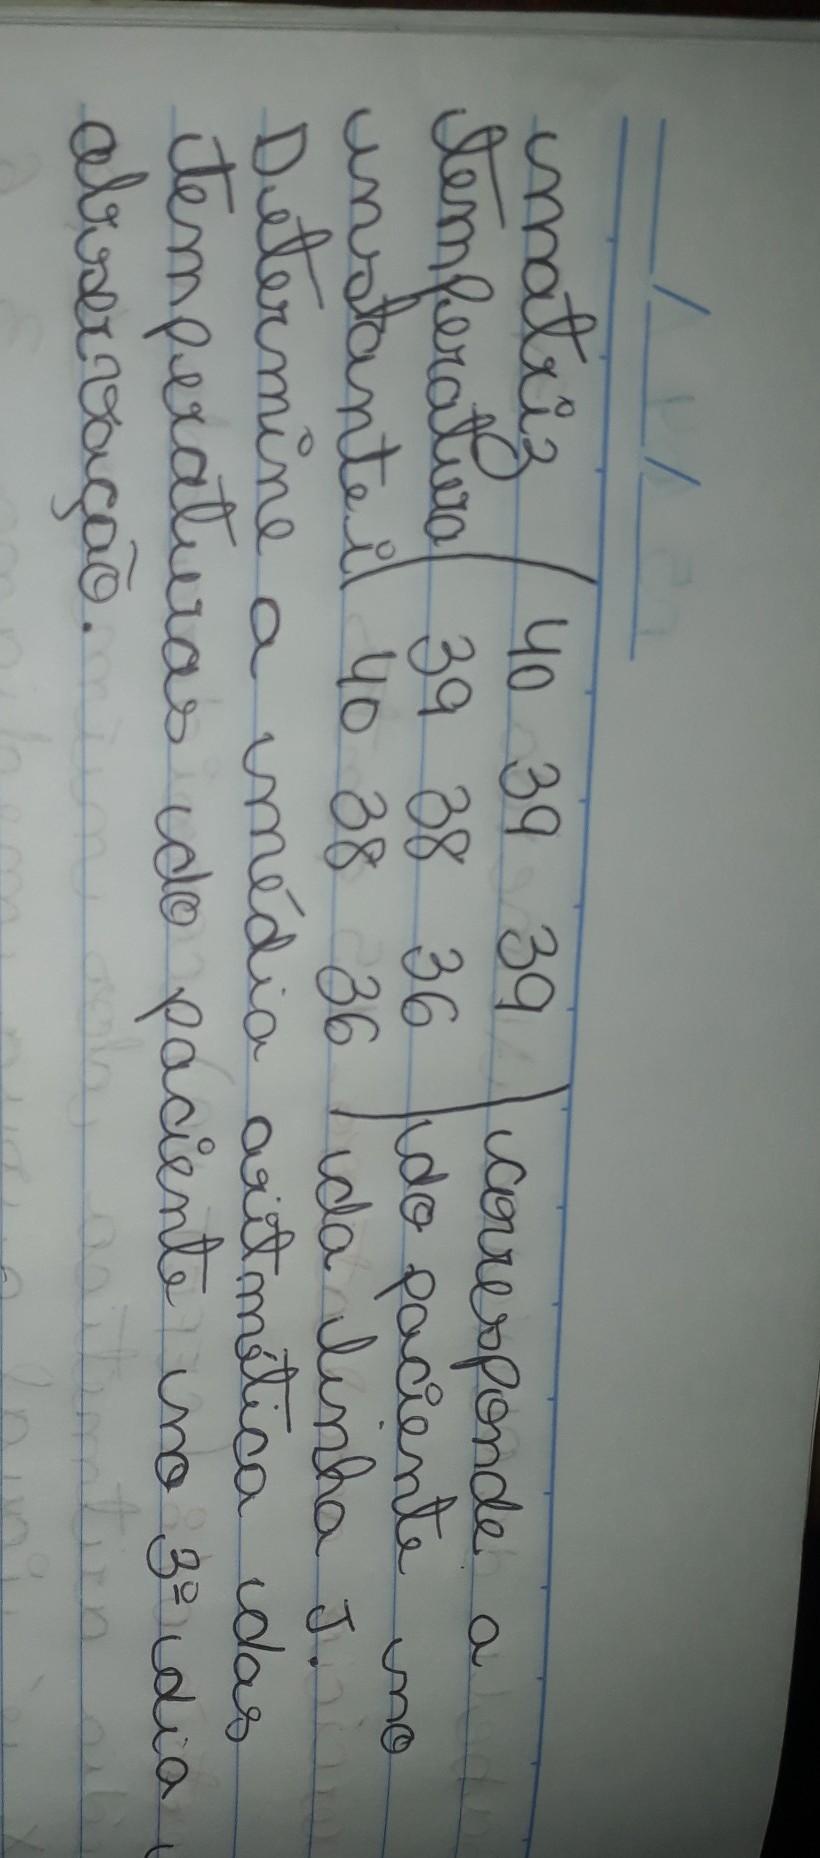 matriz ( 40 39 39 ) corresponde a
temperatura ( 39 38 36 ) do paciente no
instante i ( 40 38 36 ) da linha J.
Determine a média aritmética das
temperaturas do paciente no 3º dia
observação.